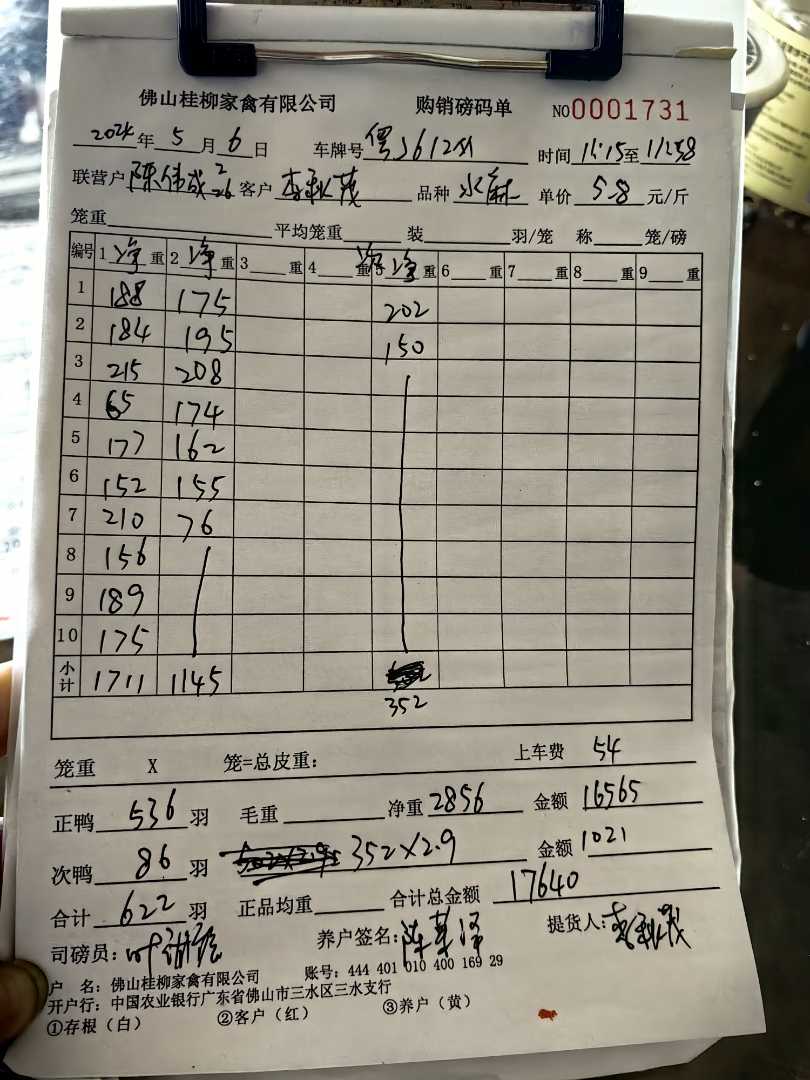 佛山桂柳家禽有限公司 购销磅码单 NO0001731
2024年5月6日 车牌号 粤J612 时间 11:15至11:58
联营户 陈伟成 2-26 客户 李秋茂 品种 水麻 单价 5.8 元/斤
笼重 平均笼重 装 羽/笼 称 笼/磅
编号 1 净重 2 净重 3 重 4 重 5 次净重 6 重 7 重 8 重 9 重
1 188 175 202
2 184 195 150
3 215 208
4 65 174
5 177 162
6 152 155
7 210 76
8 156
9 189
10 175
小计 1711 1145
352
笼重 X 笼=总皮重: 上车费 54
正鸭 536 羽 毛重 净重 2856 金额 16565
次鸭 86 羽 352×2.9 金额 1021
合计 622 羽 正品均重 合计总金额 17640
司磅员: 叶 养户签名: 陈 提货人: 李秋茂
户 名: 佛山桂柳家禽有限公司 账号: 444 401 010 400 169 29
开户行: 中国农业银行广东省佛山市三水区三水支行
①存根（白） ②客户（红） ③养户（黄）